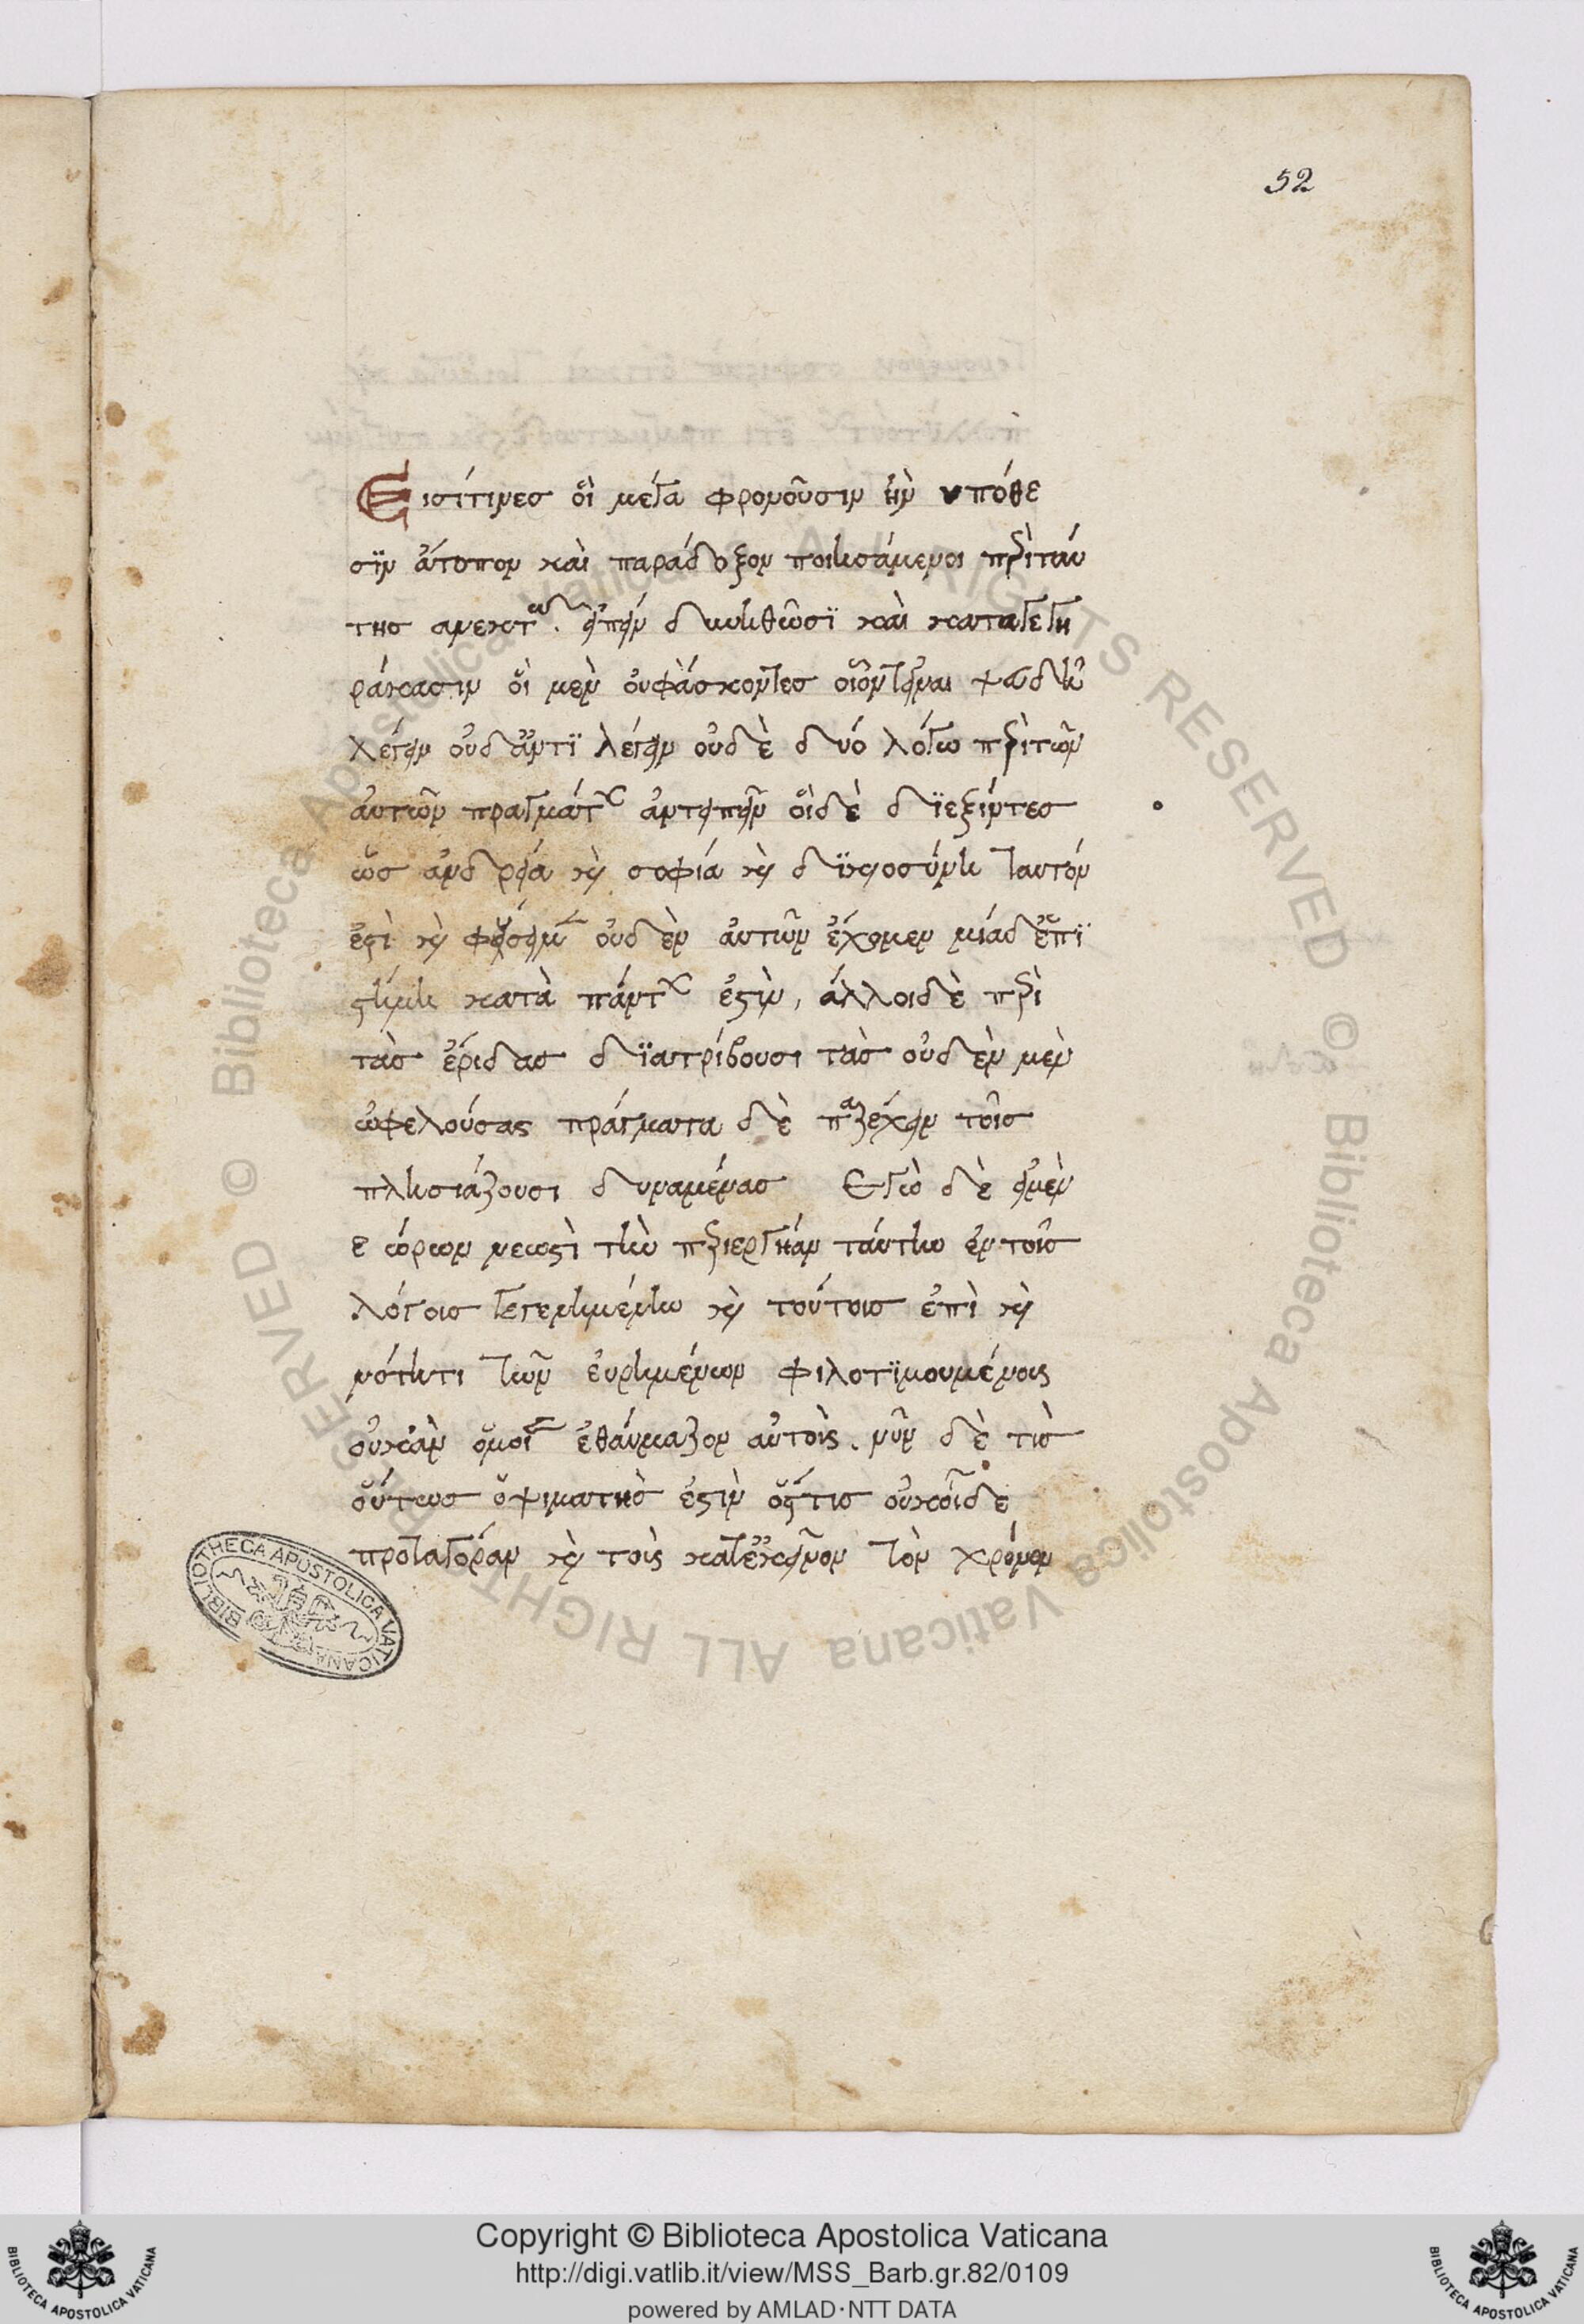 52
Εἰσίτινεσ οἳ μέγα φρονοῦσιν ἢν υπόθε
σϊν ἄτοπον καὶ παράδοξον ποιησάμενοι περὶταύ
της ανεκτῶσ. εἰπεῖν δυνηθῶσϊ καὶ καταγεγη
ράκασιν οἳ μὲν οὐφάσκοντες οἷόντ'εἶναι ψευδῆ
λέγειν οὐδ'ἀντϊ λέγειν οὐδὲ δυό λόγω περὶτῶν
αὐτῶν πραγμάτων ἀντειπεῖν οἳδὲ δϊεξιόντεσ
ὡσ ἀνδρεία καὶ σοφία καὶ δϊκαιοσύνη ταυτόν
ἐστὶ καὶ φύσει μὲν οὐδὲν αὐτῶν ἔχομεν μίαδ'ἐπϊ
στήμη κατὰ πάντων ἐστὶν, ἄλλοιδὲ περὶ
τὰσ ἔριδασ δϊατρίβουσι τὰσ οὐδὲν μὲν
ὠφελούσας πράγματα δὲ παρέχειν τοῖσ
πλησιάζουσι δυναμένασ Εγὼ δὲ εἰμὲν
εώρων νεωστὶ τὴν περιεργίαν ταύτην ἐντοῖσ
λόγοισ γεγενημένην καὶ τούτοισ ἐπὶ και
νότητι τῶν εὑρημένων φιλοτϊμουμένους
οὐκἂν ὁμοίως ἐθαύμαζον αὐτοὺς. νῦν δὲ τίσ
οὕτωσ ὀψιμαθὴσ ἐστὶν ὅςτισ οὐκοῖδε
πρωταγόραν καὶ τοὺς κατ'ἐκεῖνον τὸν χρόνον
BIBLIOTHECA APOSTOLICA VATICANA
Copyright © Biblioteca Apostolica Vaticana
http://digi.vatlib.it/view/MSS_Barb.gr.82/0109
powered by AMLAD·NTT DATA